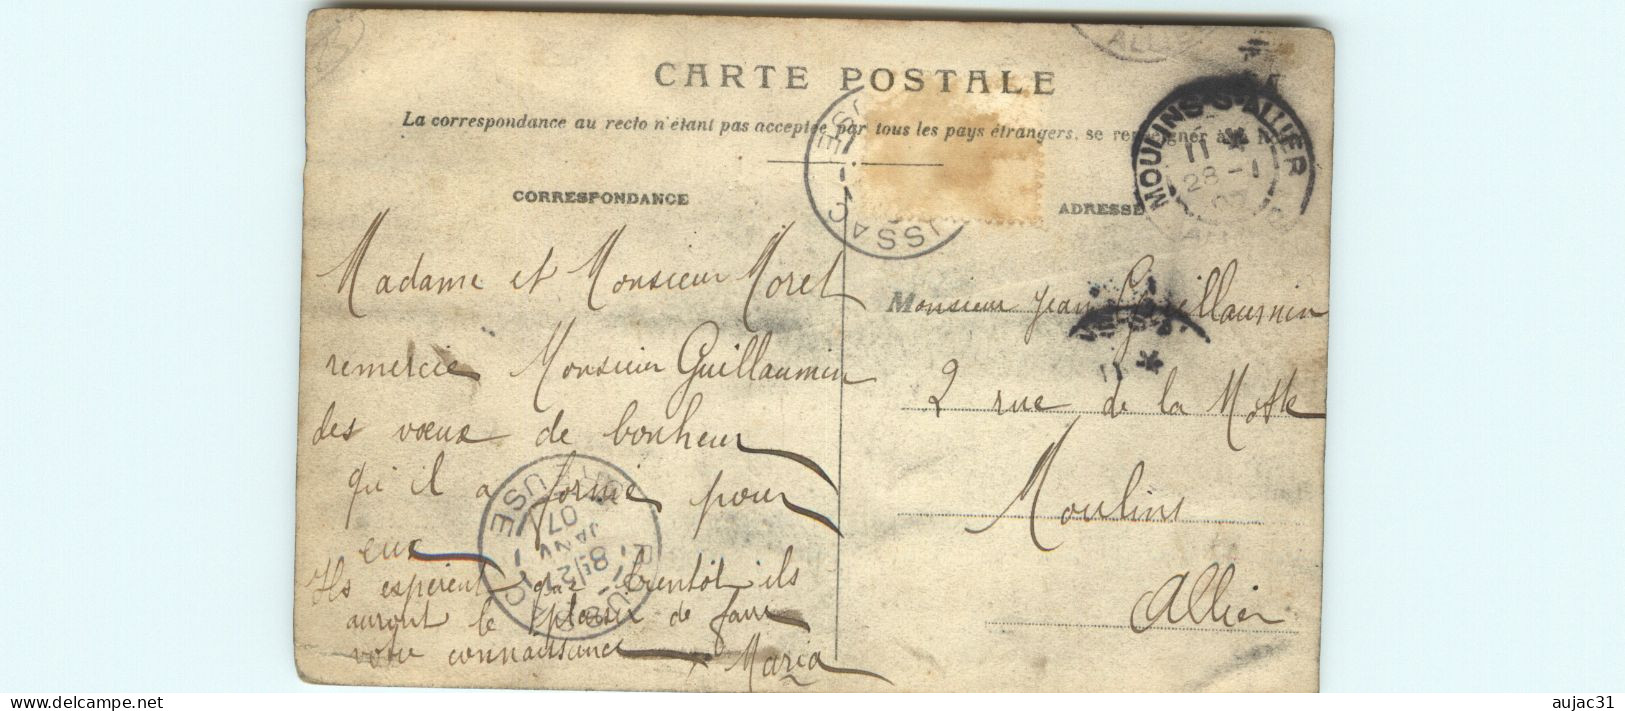 CARTE POSTALE
La correspondance au recto n'étant pas acceptée par tous les pays étrangers, se renseigner à la
CORRESPONDANCE
ADRESSE
MOULINS-S-ALLIER
11
28 - 1
07
ALLIER
Madame et Monsieur Moret
remercie Monsieur Guillaumin
des vœux de bonheur
qu'il a formé pour
eux
Ils espèrent que bientôt ils
auront le plaisir de faire
votre connaissance
Maria
Monsieur Jean Guillaumin
2 rue de la Motte
Moulins
Allier
CREUSE
BOUSSAC
8E/21
JANV
07
USSAC
11
aujac31